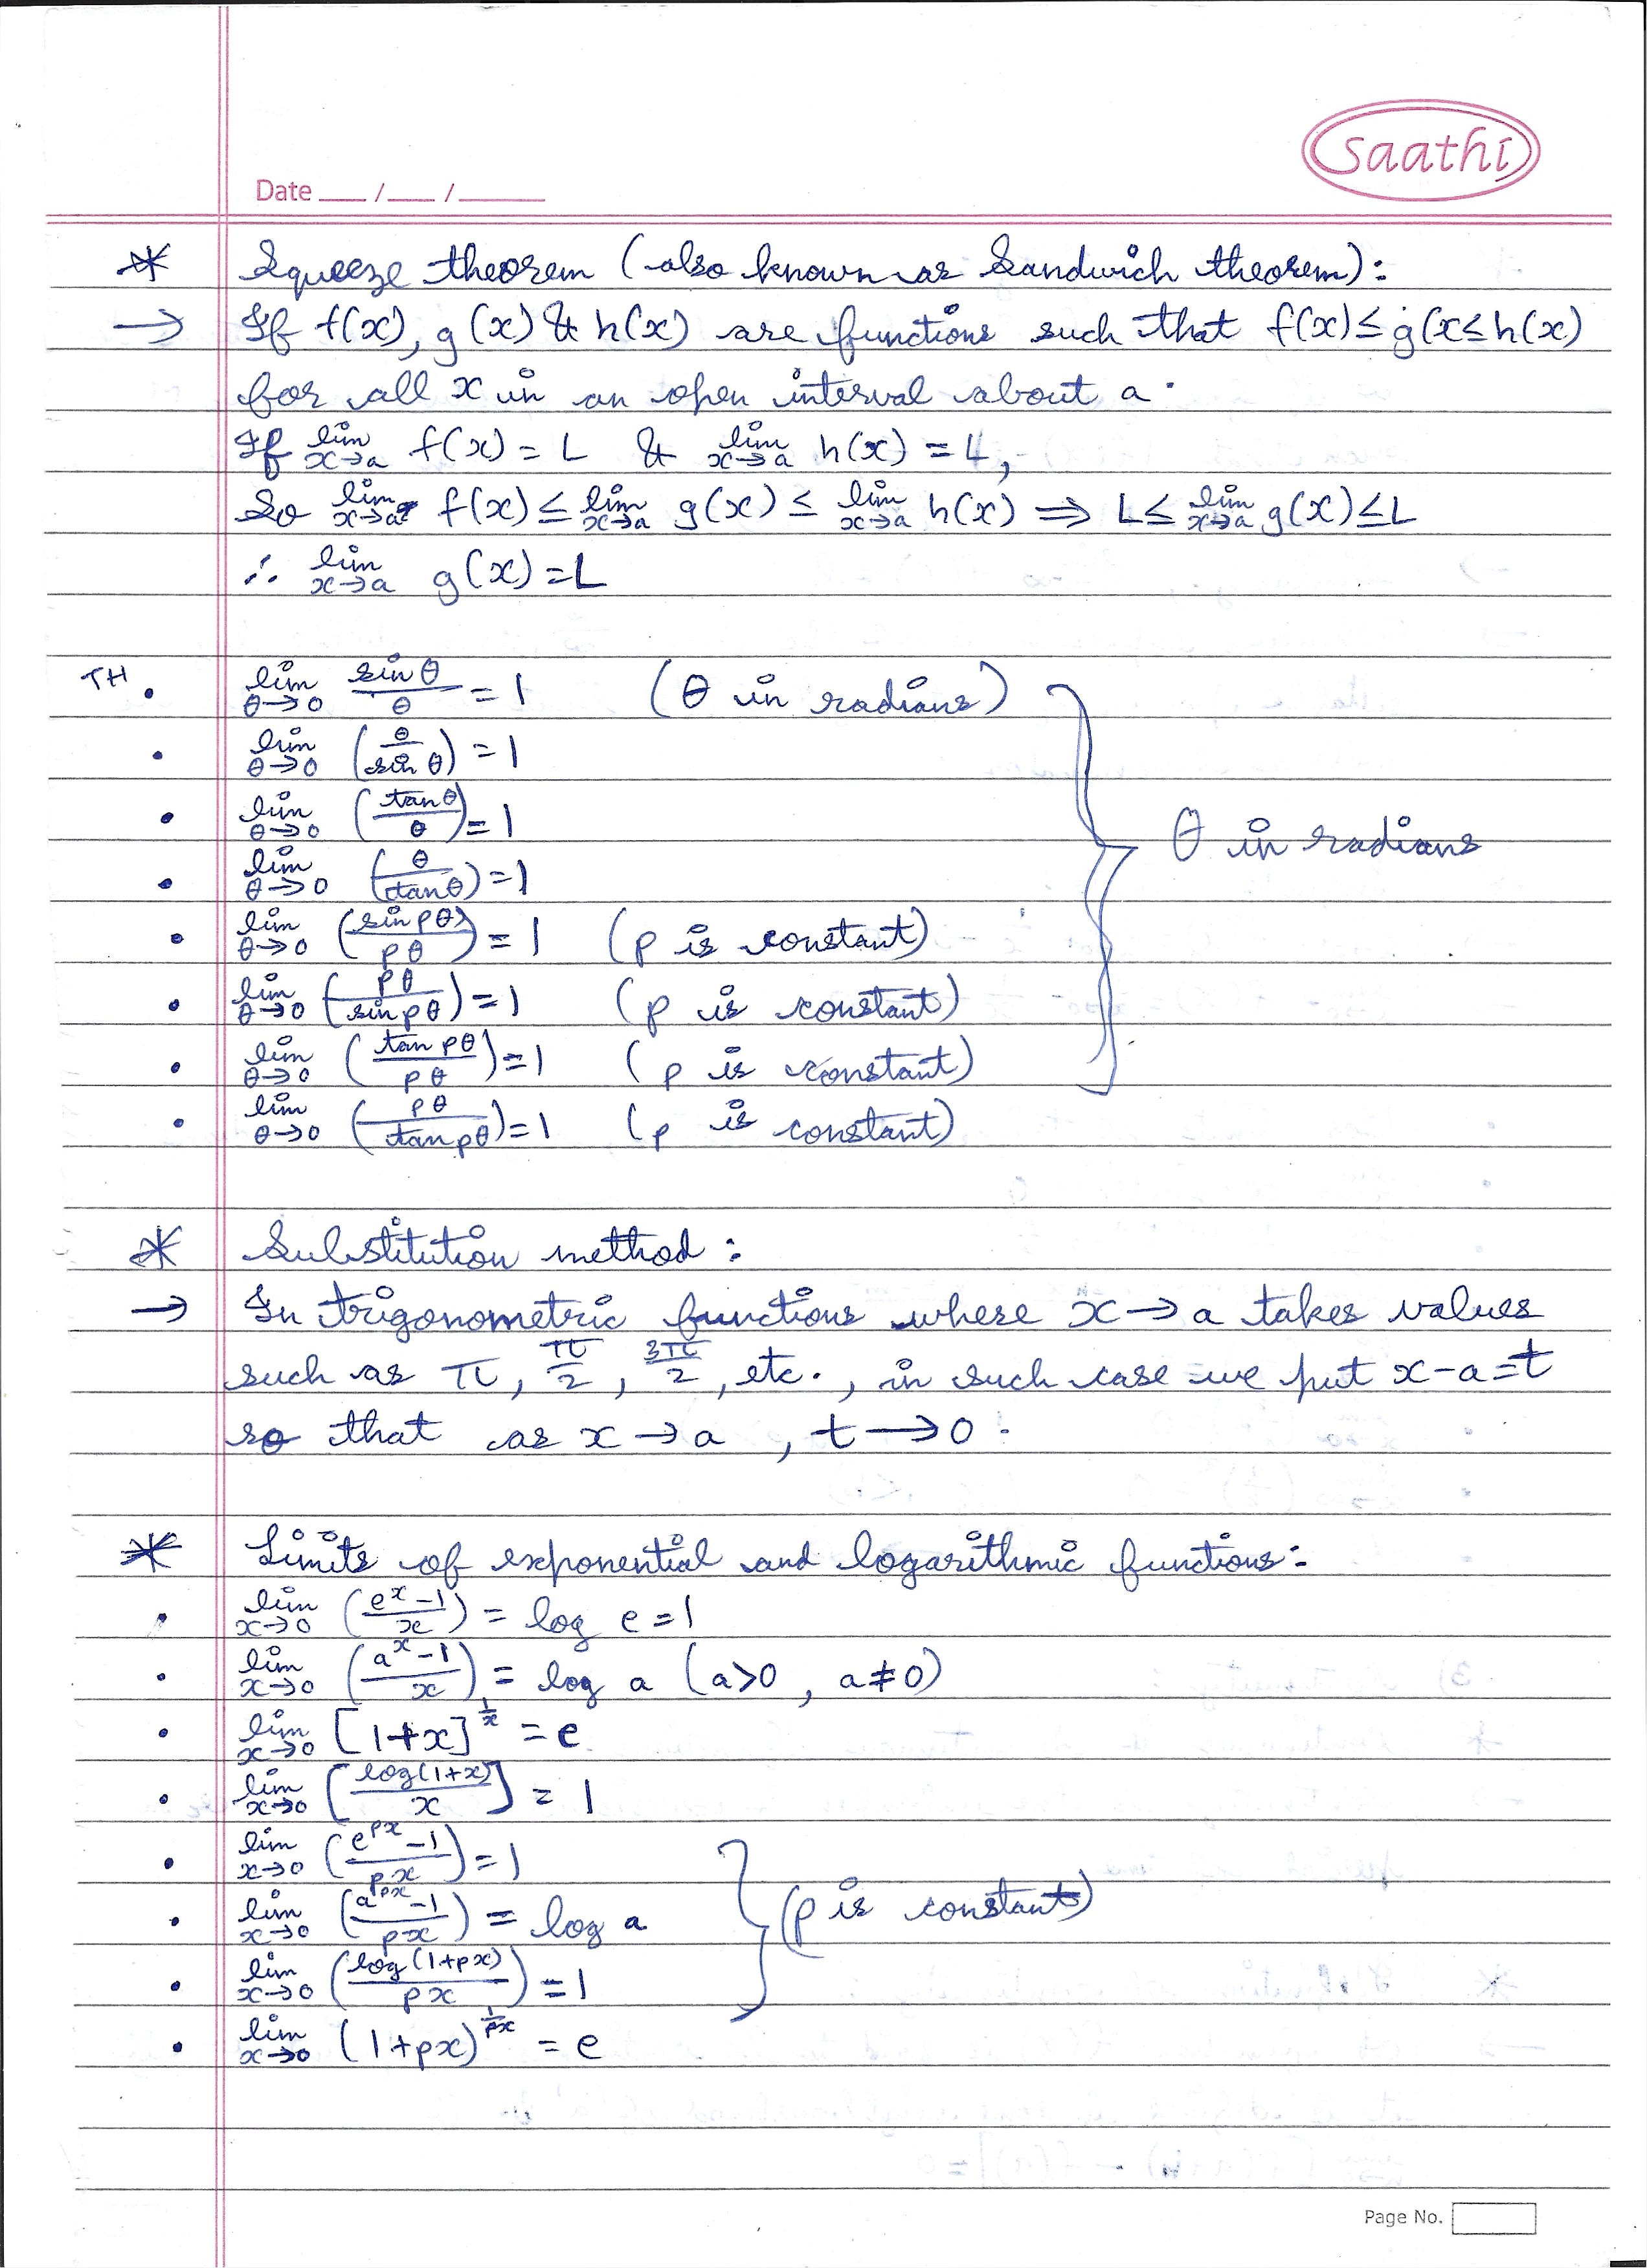 saathi
Date ___ / ___ / ______
* Squeeze theorem (also known as Sandwich theorem):
→ If f(x), g(x) & h(x) are functions such that f(x)≤g(x≤h(x)
for all x in an open interval about a.
If lim x→a f(x) = L & lim x→a h(x) = L,
So lim x→a f(x) ≤ lim x→a g(x) ≤ lim x→a h(x) ⇒ L≤ lim x→a g(x)≤L
∴ lim x→a g(x)=L
TH • lim θ→0 sinθ/θ = 1 (θ in radians)
• lim θ→0 (θ/sin θ) = 1
• lim θ→0 (tanθ/θ) = 1
θ in radians
• lim θ→0 (θ/tanθ) = 1
• lim θ→0 (sin pθ/pθ) = 1 (p is constant)
• lim θ→0 (pθ/sin pθ) = 1 (p is constant)
• lim θ→0 (tan pθ/pθ) = 1 (p is constant)
• lim θ→0 (pθ/tan pθ) = 1 (p is constant)
* Substitution method :
→ In trigonometric functions where x→a takes values
such as π, π/2, 3π/2, etc., in such case we put x-a=t
so that as x→a , t→0.
* Limits of exponential and logarithmic functions:
• lim x→0 (e^x -1/x) = log e = 1
• lim x→0 (a^x -1/x) = log a (a>0 , a≠0)
• lim x→0 [1+x]^1/x = e
• lim x→0 [log(1+x)/x] = 1
• lim x→0 (e^px -1/px) = 1
• lim x→0 (a^px -1/px) = log a
(p is constant)
• lim x→0 (log(1+px)/px) = 1
• lim x→0 (1+px)^1/px = e
Page No.